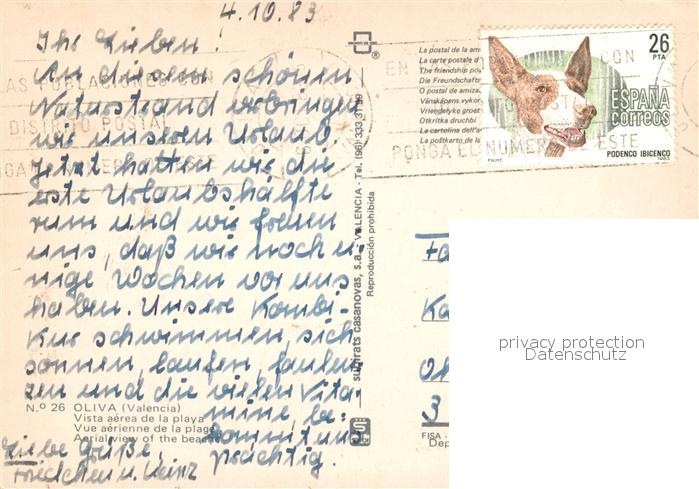 4.10.83
Ihr Lieben!
An diesem schönen
Naturstrand verbringen
wir unseren Urlaub.
Jetzt hatten wir die
erste Urlaubshälfte
rum und wir freuen
uns, daß wir noch ei-
nige Wochen vor uns
haben. Unsere Kombi-
Kur schwimmen, sich
sonnen, laufen, faulen
zen und die vielen Vita-
mine, be-
kommt uns
prächtig.
Liebe Grüße,
Friedchen u. Heinz
N.º 26 OLIVA (Valencia)
Vista aérea de la playa
Vue aérienne de la plage
Aerial view of the beach
subirats casanovas, s.a. - VALENCIA - Tel. (96) 333 31 99
Reproducción prohibida
La postal de la am
La carte postale d
The friendship po
Die Freundschafts
O postal de amiza
Vänskapens vykor
Vriendelyke groet
Otkritka druchbi
La cartolina dell'a
La postkarto de la
26
PTA
ESPAÑA
correos
PODENCO IBICENCO
F.N.M.T.
1983
LAS POBLACIONES CON
DISTRITO POSTAL
EN
CON
PONGA EL NUMERO
ESTE
Ka
3
FISA -
Dep
privacy protection
Datenschutz